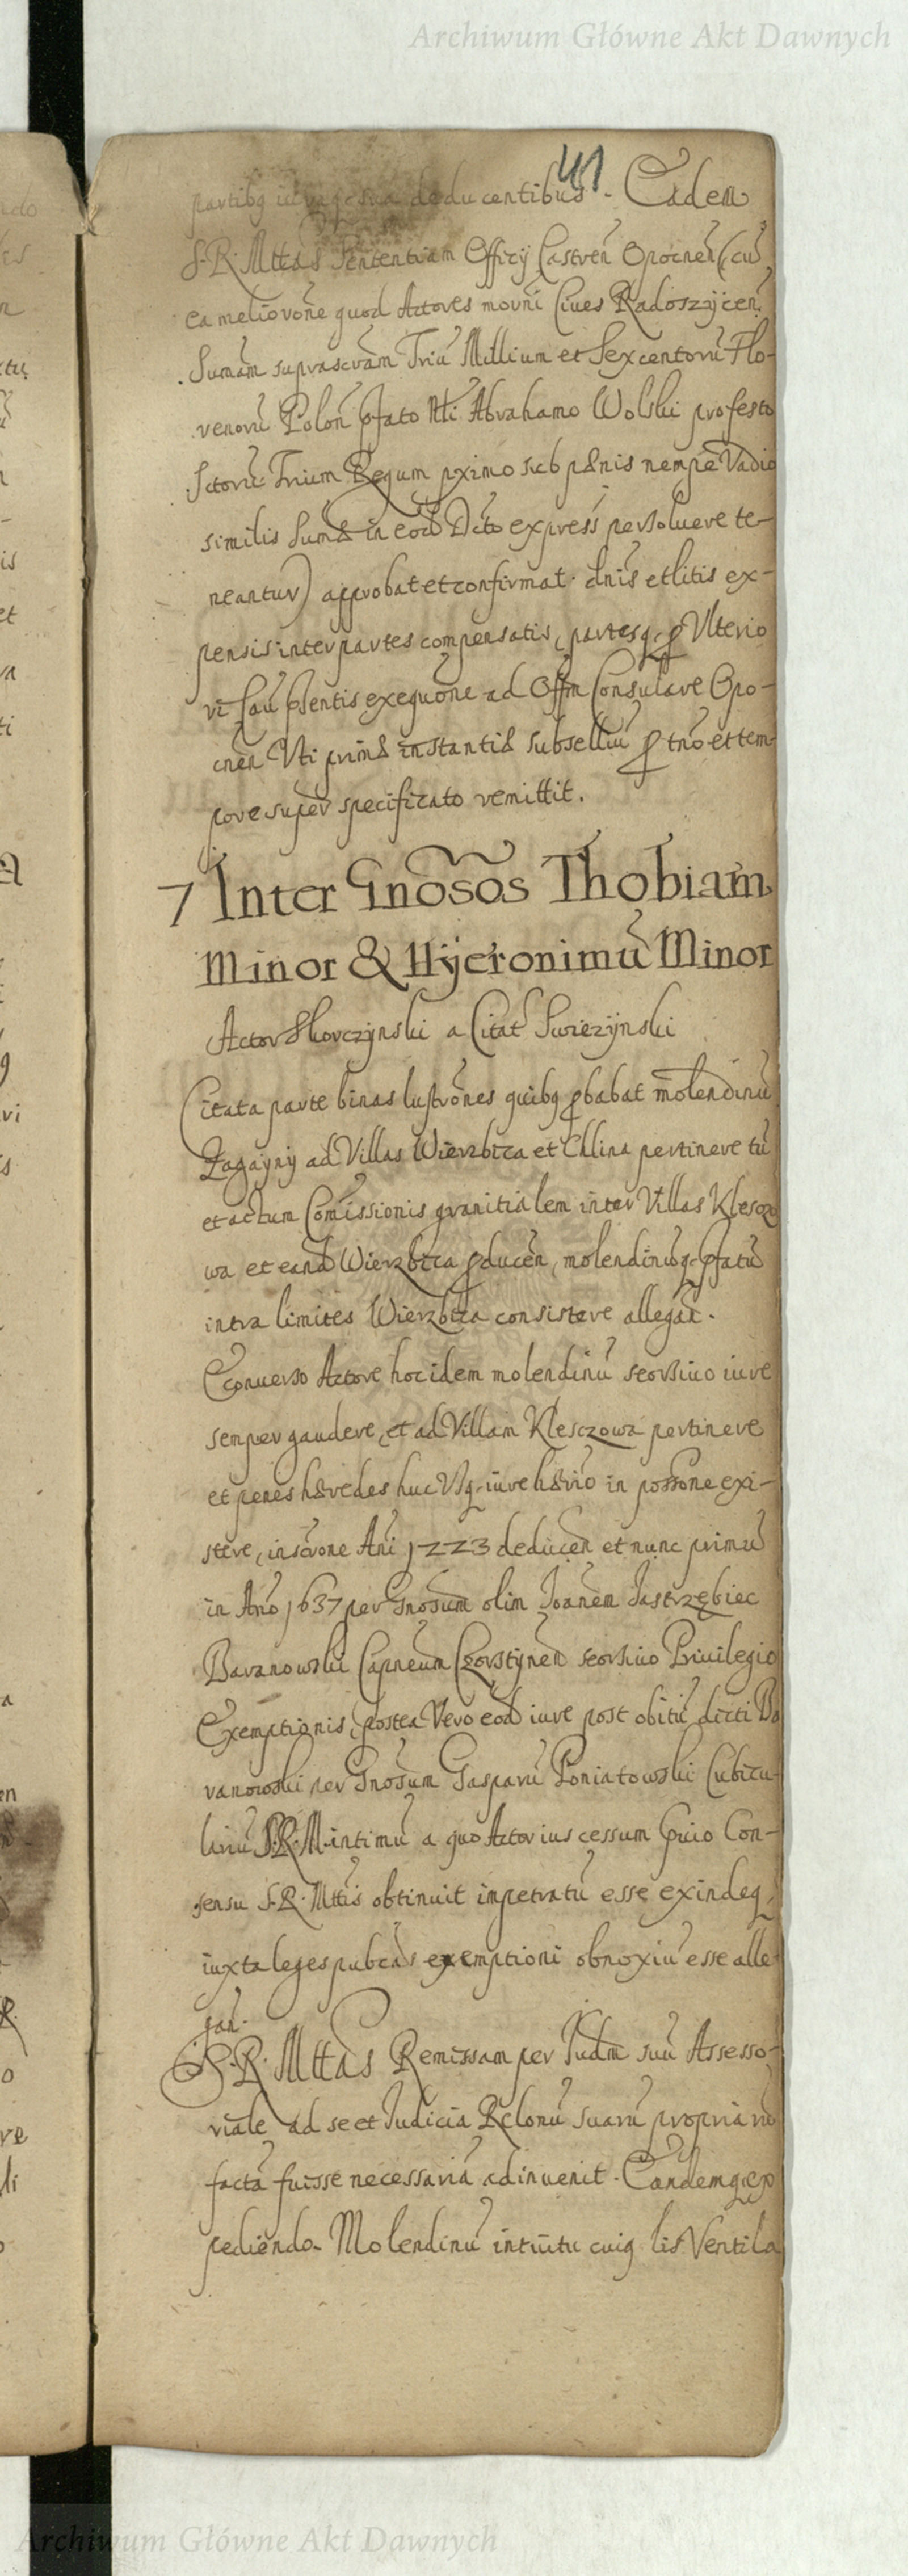 Archiwum Główne Akt Dawnych
41
partibq deducentibus. Eadem
S. R. Mttas Sententiam Officij Castreń Opocneń (cū
ea meliorōne quod Actores mouñi Ciues Radoszÿceń
Sumam suprascrām Triū Millium et Sexcentorū Flo-
renorū Poloń pfato Nli Abrahamo Wolski pro festo
Sctorū Trium Regum pximo sub pænis nempe Vadio
similis Sumæ in eod Dcto express persoluere te-
neantur) approbat et confirmat. dnis et litis ex-
pensis inter partes compensatis, partesq; p Vlterio
ri hui psentis exequōne ad Offm Consulare Opo-
cneń Vti primæ instantiæ subselliū p tnō et tem-
pore super specificato remittit.
7 Inter Gnōsos Thobiam
Minor & Hÿeronimū Minor
Actor Skorczÿnski a Citat Swiezÿnski
Citata parte binas lustrōnes quibq pbabat molendinū
Zagaÿnÿ ad Villas Wierzbica et Chlina pertinere tū
et actum Comissionis granitialem inter Villas Klesczo
wa et eand Wierzbica pduceń, molendinūq; pfatū
intra limites Wierzbica consistere allegań.
Econuerso Actore hoc idem molendinū seorsiuo iure
semper gaudere, et ad Villam Klesczowa pertinere
et penes hæredes huc Vsq; iure hærio in possōne exi-
stere, inscrōne Añi 1223 deduceń et nunc primū
in Año 1637 per Gnosum olim Joanem Jastrzębiec
Baranowski Capneum Czorstÿneń seorsiuo Priuilegio
Exemptionis, postea Vero eod iure post obitū dicti Ba
ranowski per Gnosum Gasparū Poniatowski Cubicu-
lariū S. R. M. intimū a quo Actor ius cessum Con-
sensu S. R. Mttis obtinuit impetratū esse exindeq;
iuxta leges pubcas exemptioni obnoxiū esse alle
gań.
S. R. Mttas Remissam per Judm suū Assesso-
riale ad se et Judicia Relonū suarū propriarū
factā fuisse necessariā adinuenit. Eandemq; ex
pediendo. Molendinū intuitu cuiq lis Ventila
Archiwum Główne Akt Dawnych